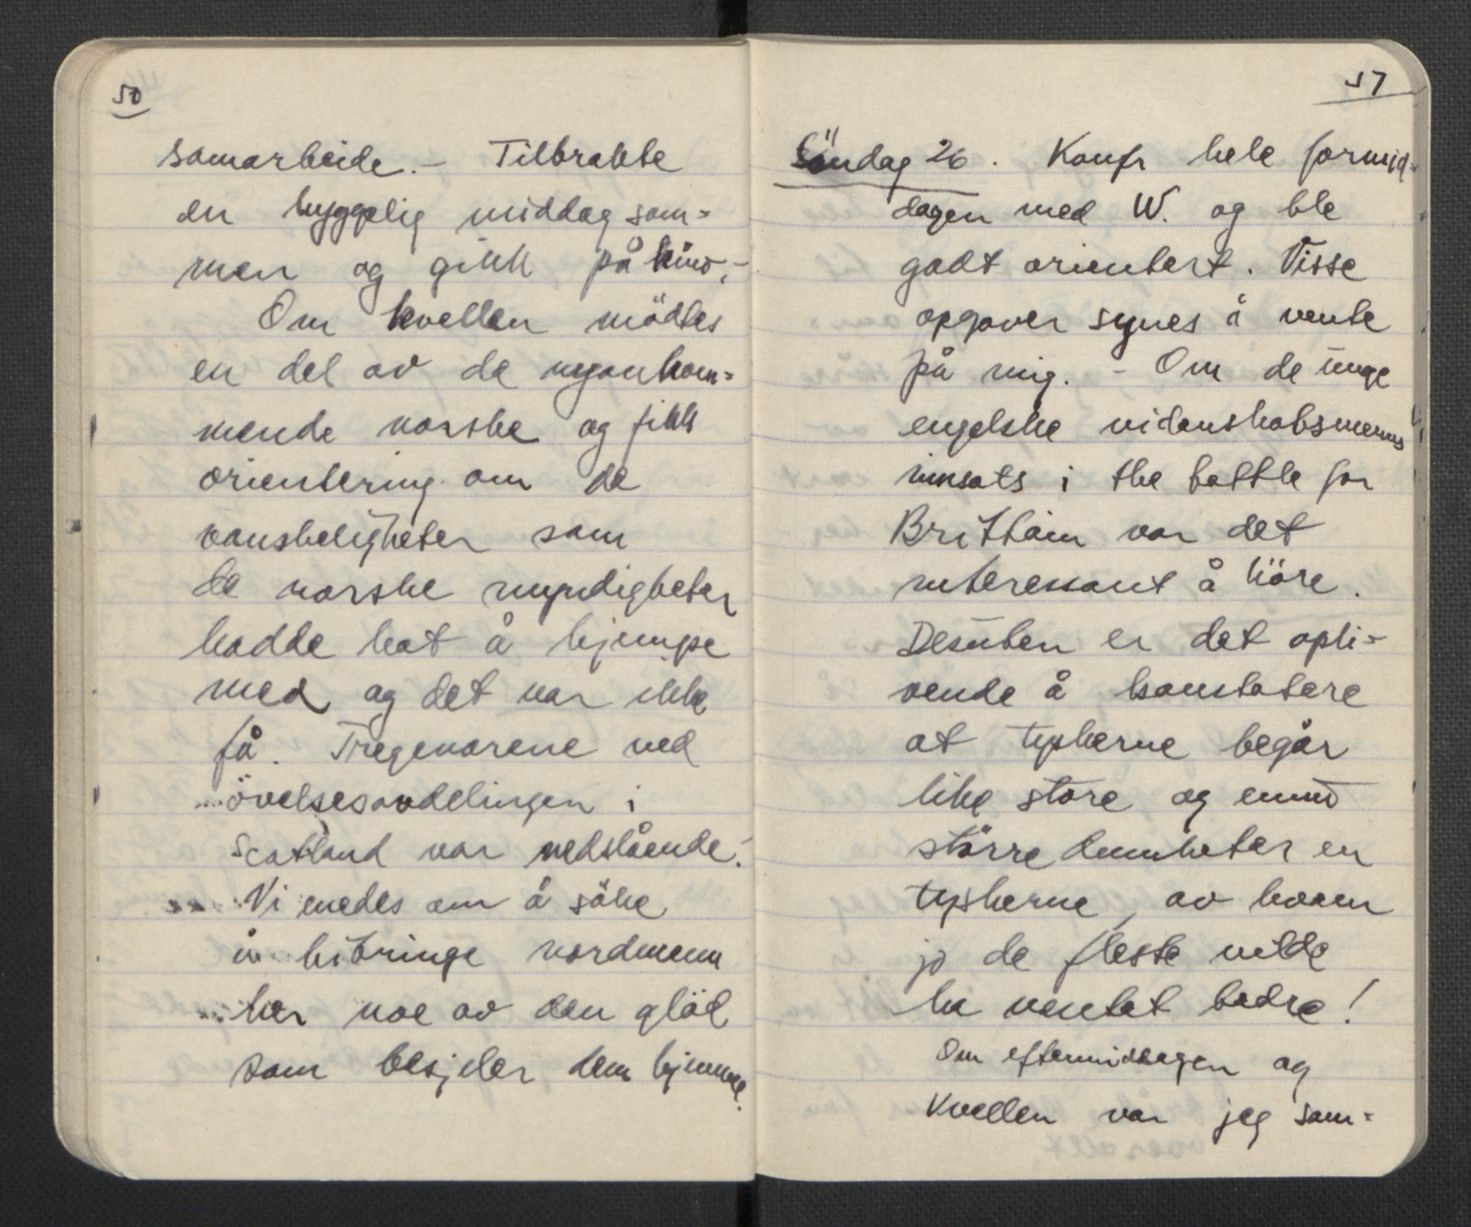 50
samarbeide. - Tilbrakte
en hyggelig middag sam=
men og gikk på kino, -
Om kvellen mödtes
en del av de nyankom=
mende norske og fikk
orientering om de
vanskeligheter som
de norske myndigheter
hadde hat å kjempe
med og det var ikke
få. Tregenarene ved
övelsesavdelingen i
Scotland var nedslående.
Vi enedes om å söke
å bibringe nordmenn
her noe av den glöd
som besjeler dem hjemme.
51
Söndag 26. Konfr hele formid=
dagen med W. og ble
godt orientert. Visse
opgaver synes å vente
på mig. - Om de unge
engelske videnskabsmenns
innsats i the battle for
Brittain var det
interessant å höre.
Desuten er det opli-
vende å konstatere
at tyskerne begår
like store og ennu
större dumheter en
tyskerne, av hvem
jo de fleste vilde
ha ventet bedre!
Om eftermiddagen og
kvellen var jeg sam=